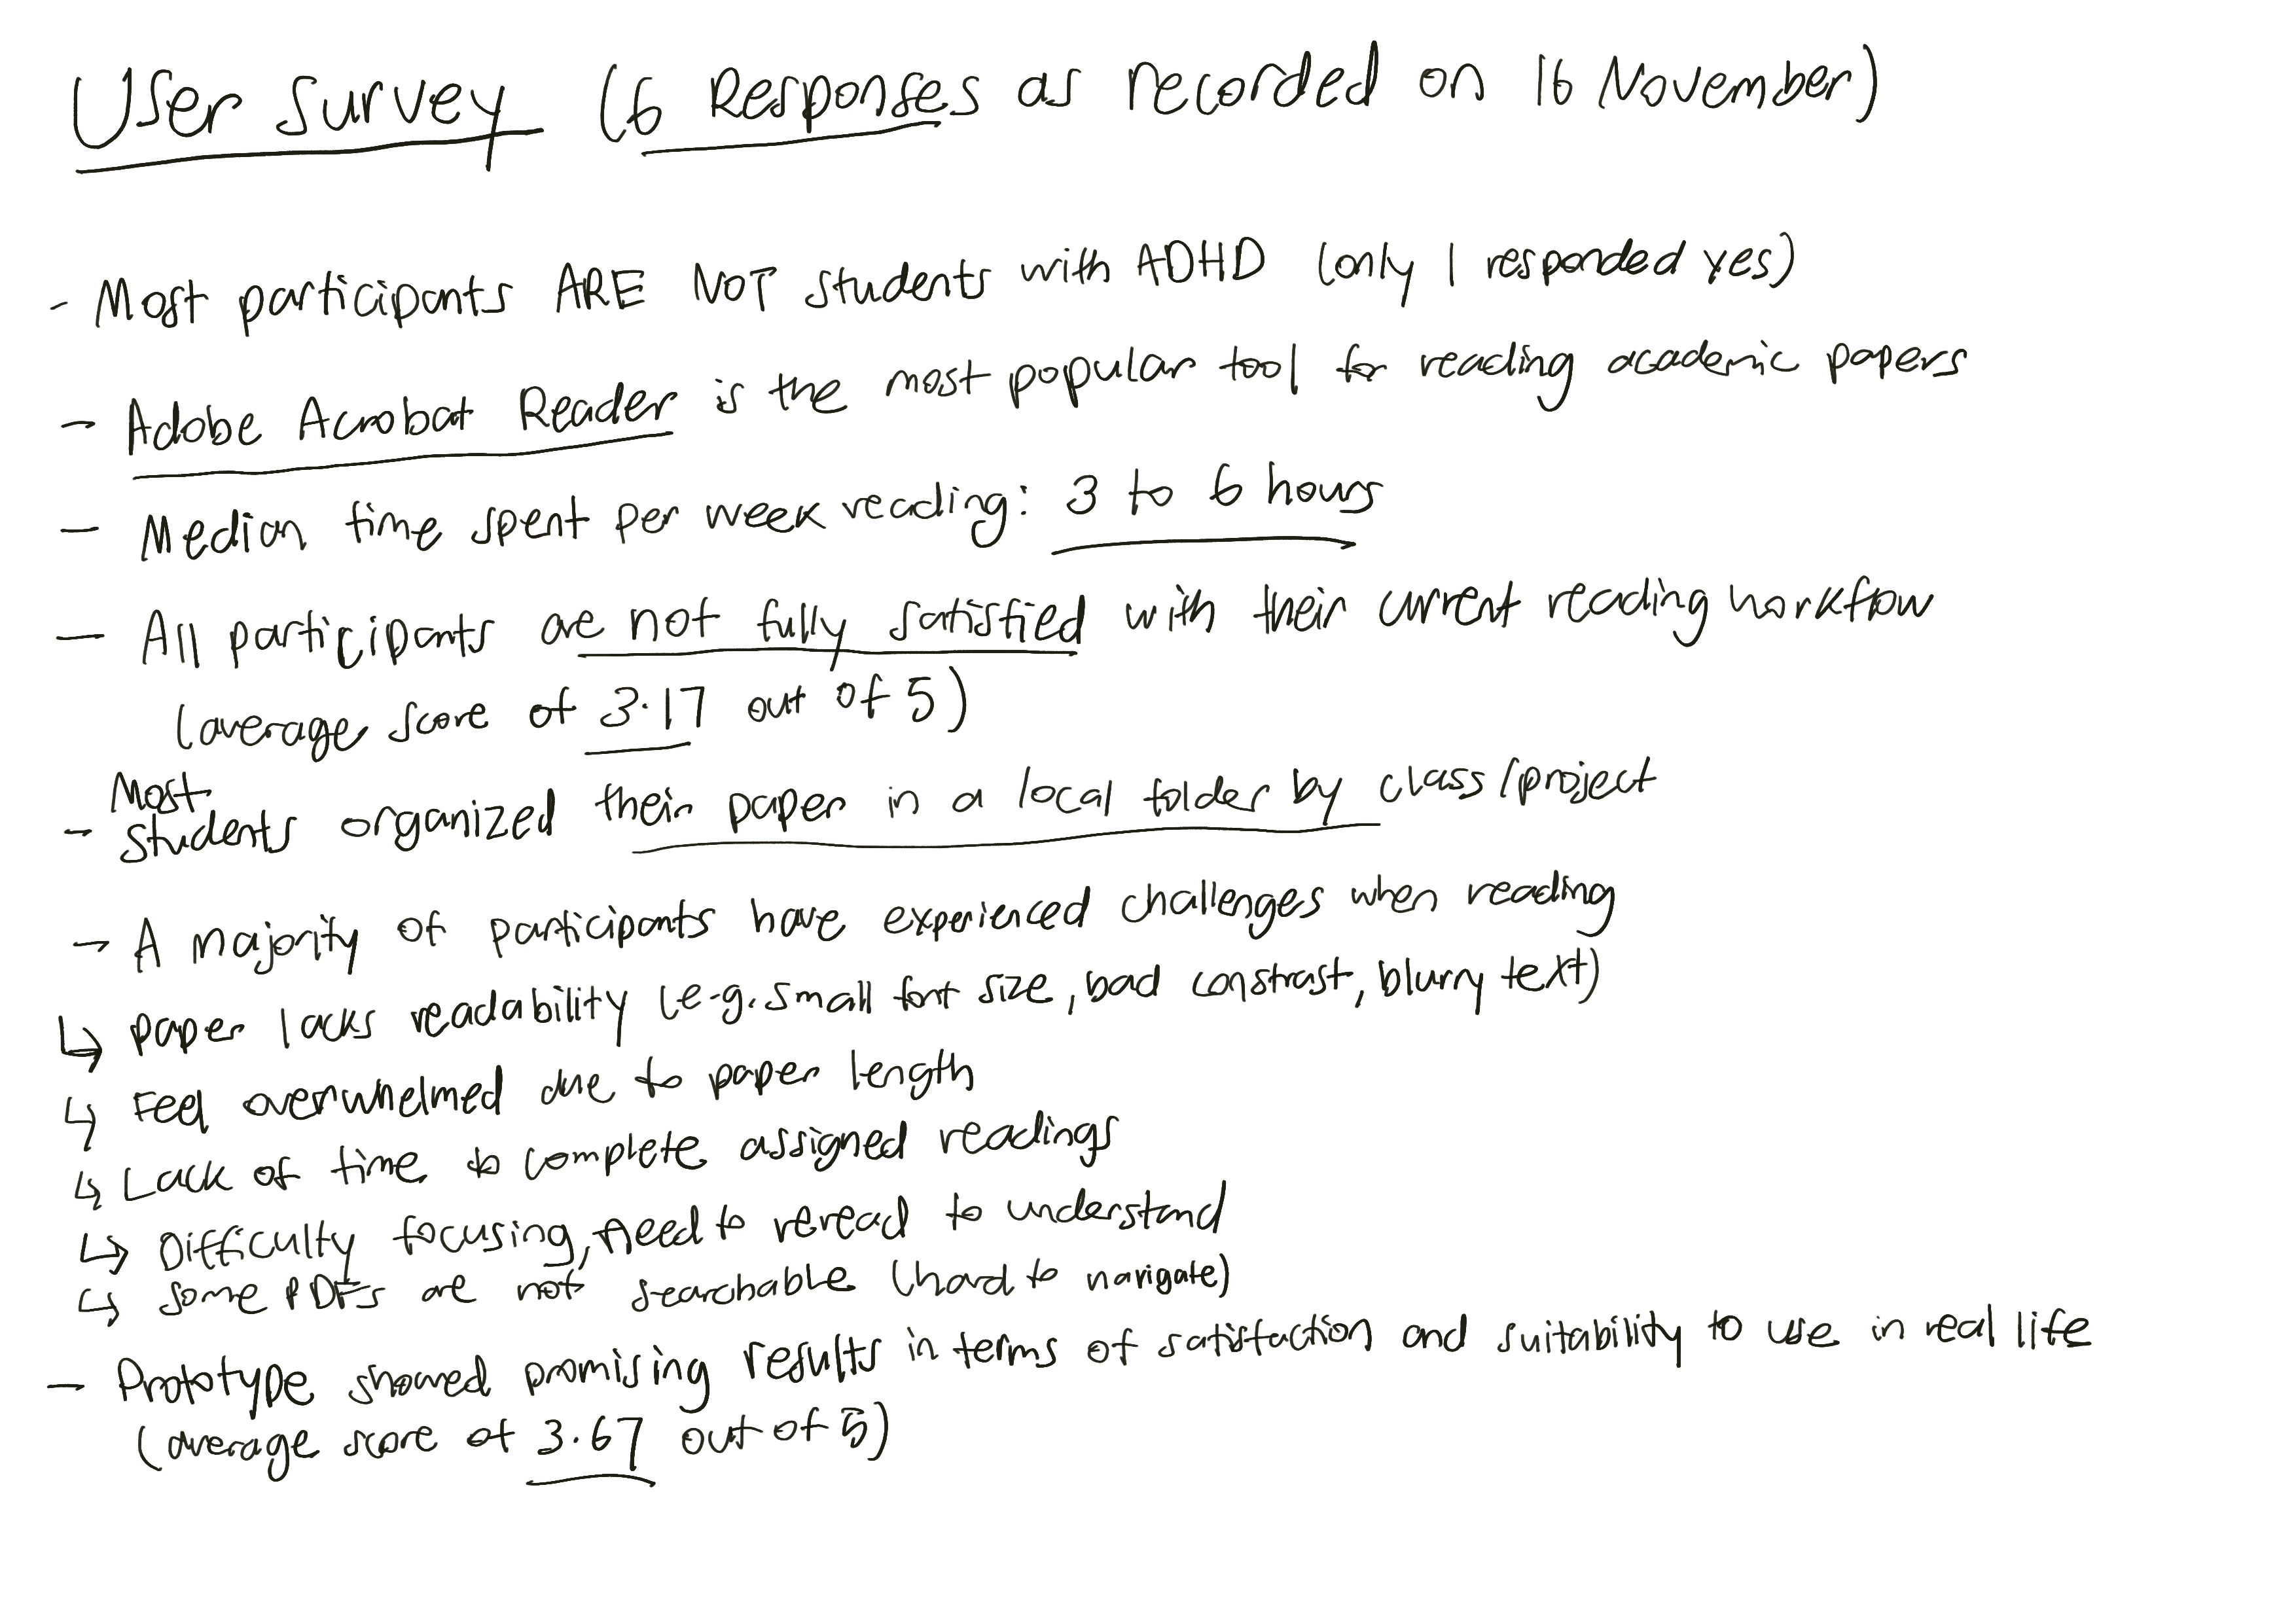 User Survey (6 Responses as recorded on 16 November)
- Most participants ARE NOT students with ADHD (only 1 responded yes)
- Adobe Acrobat Reader is the most popular tool for reading academic papers
- Median time spent per week reading: 3 to 6 hours
- All participants are not fully satisfied with their current reading workflow
(average score of 3.17 out of 5)
Most
- students organized their paper in a local folder by class/project
- A majority of participants have experienced challenges when reading
↳ paper lacks readability (e-g. small font size, bad constrast, blurry text)
↳ Feel overwhelmed due to paper length
↳ Lack of time to complete assigned readings
↳ Difficulty focusing, need to reread to understand
↳ Some PDFs are not searchable (hard to navigate)
- Prototype showed promising results in terms of satisfaction and suitability to use in real life
(average score of 3.67 out of 5)